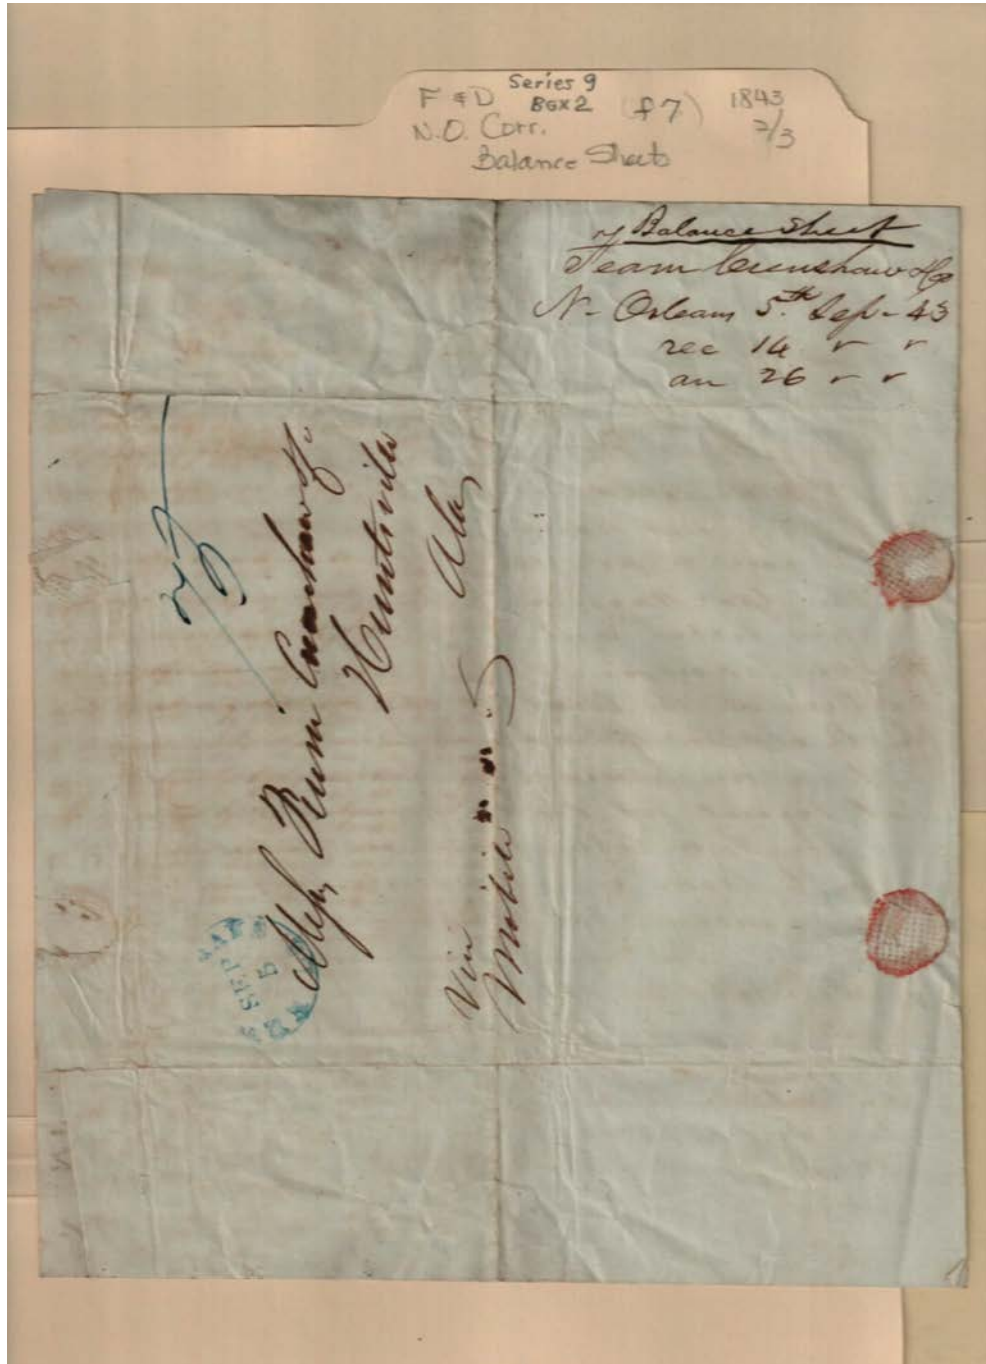 F & D Series 9 Box 2 (f 7) 1843
N.O. Corr. 2/3
Balance Sheets
Balance Sheet
Crenshaw & Co
N- Orleans 5th Sep- 43
rec 14 " "
an 26 " "
Crenshaw & Co
Huntsville
Ala
Via
Mobile
SEP
5